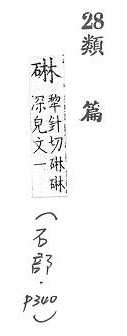 28
類篇
碄
犂針切碄碄
深皃文一
(石部.
p340)